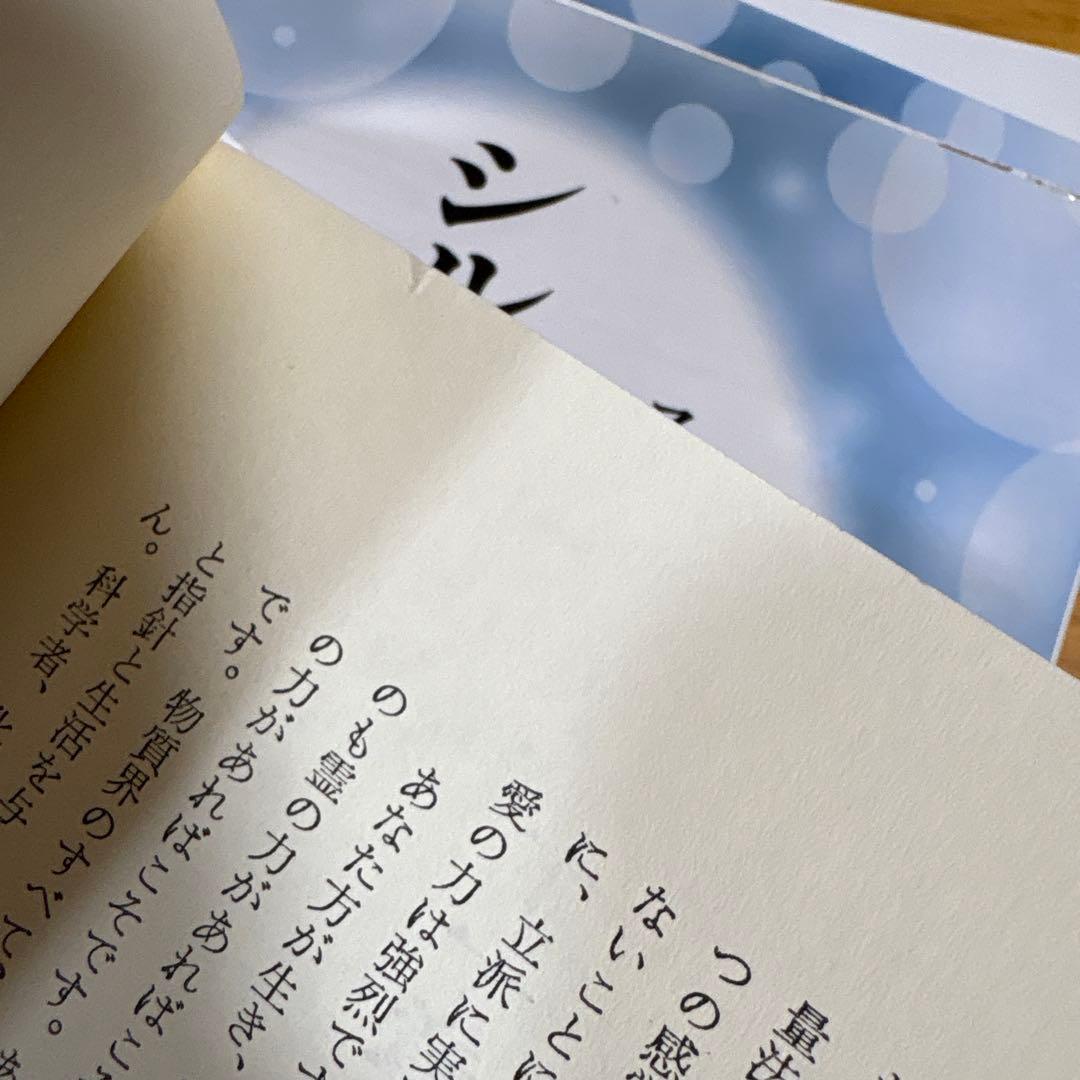 シル
量法
つの感
ないことに
に、立派に実
愛の力は強烈です
あなた方が生き、
のも霊の力があればこ
の力があればこそです。あ
です。物質界のすべて
と指針と生活を与
ん。科学者、